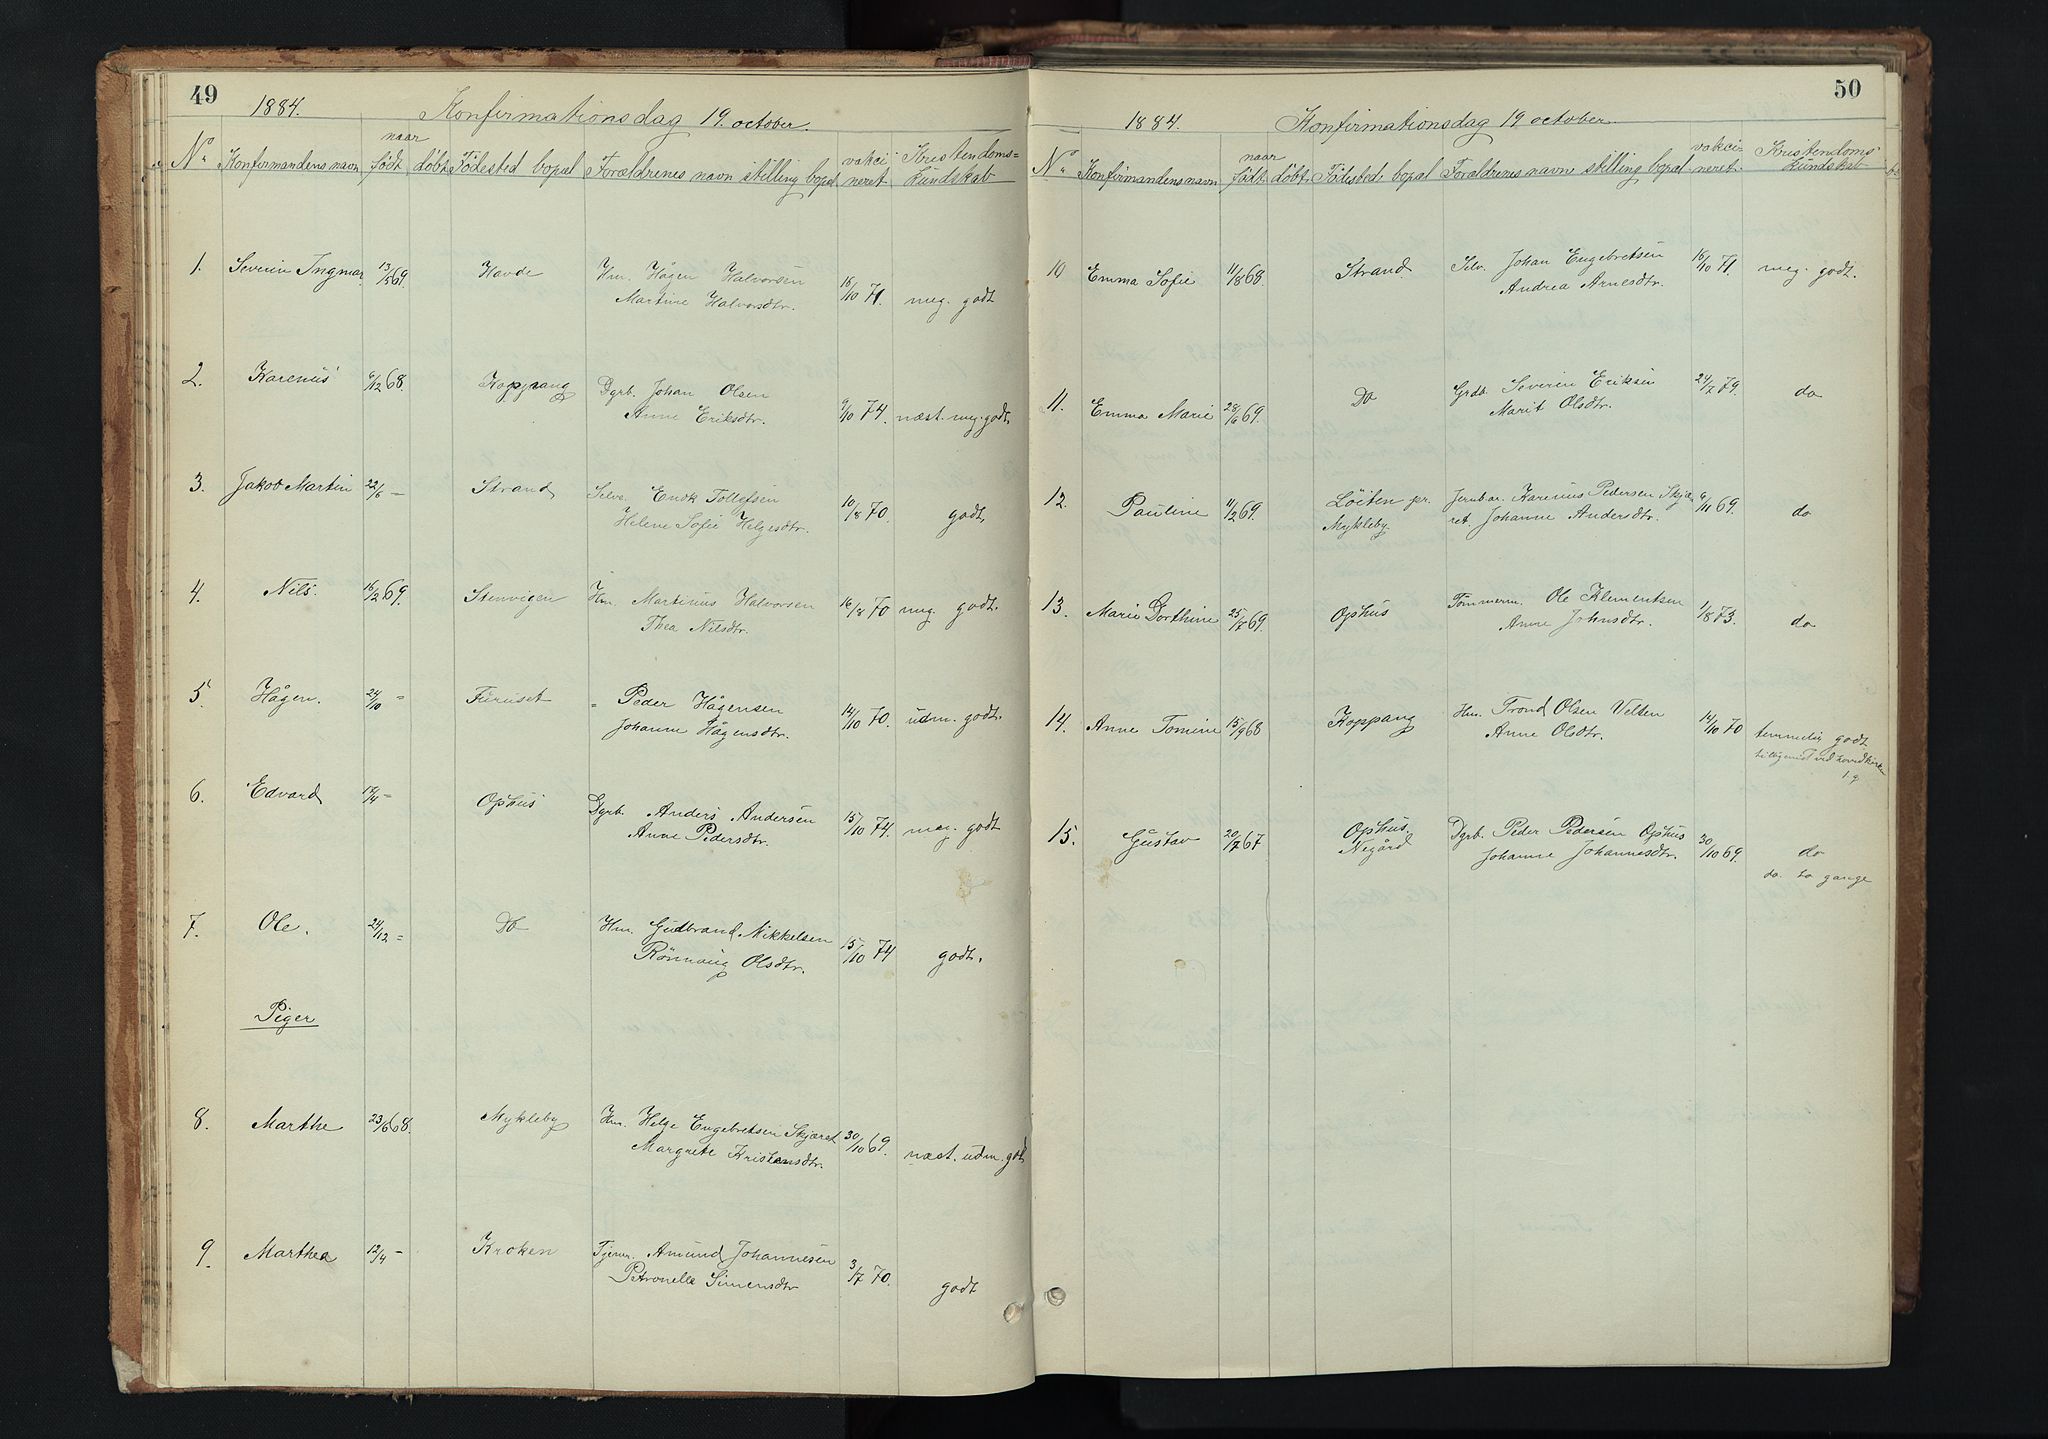 49
1884. Konfirmationsdag 19. october.
No. Konfirmandens navn naar født døbt Fødested bopæl Forældrenes navn stilling bopæl vakcineret Kristendoms=kundskab
1. Severin Ingmar 13/5 69. Havde Hm. Hågen Halvorsen
Martine Halvorsdtr. 16/10 71. meg. godt
2. Karenus 6/12 68. Koppang Dgrb. Johan Olsen
Anne Eriksdtr. 9/10 74. næst. meg. godt.
3. Jakob Martin 22/6 – Strand Selve. Enok Tollefsen
Helene Sofie Helgesdtr. 10/8 70. godt.
4. Nils. 16/2 69. Stenvigen Hm. Martinus Halvorsen
Thea Nilsdtr. 16/8 70 meg. godt.
5 Hågen. 24/10 = Furuset " Peder Hågensen
Johanne Hågensdtr. 14/10 70. udm. godt.
6. Edvard 12/4 = Ophus Dgrb. Anders Andersen
Anne Pedersdtr. 15/10 74. meg. godt
7. Ole. 24/12 = Do Hm. Gudbrand Mikkelsen
Rønnaug Olsdtr. 15/10 74 godt.
Piger
8. Marthe 23/6 68. Mykleby Hm. Helge Engebretsen Skjæret
Margrete Kristensdtr. 30/10 69. næst. udm. godt
9. Marthea 12/4 – Kroken Tjenm. Amund Johannesen
Petronelle Simensdtr 3/7 70. godt
50
1884. Konfirmationsdag 19 october.
No. Konfirmandens navn naar født døbt. Fødested. bopæl Forældrenes navn stilling bopæl vakcineret. Kristendoms=kundskab
10 Emma Sofie 11/8 68. Strand Selv. Johan Engebretsen
Andrea Arnesdtr. 16/10 71. meg. godt.
11. Emma Marie 28/6 69. Do Grdb. Severin Eriksen
Marit Olsdtr. 24/7 79. do
12. Pauline 11/2 69. Løiten pr.
Mykleby. Jernbar. Karenus Pedersen Skjæ
ret. Johanne Andersdtr. 6/11 69. do
13. Marie Dorthine 25/7 69. Ophus Tømmerm. Ole Klementsen
Anne Johnsdtr. 1/8 73. do
14. Anne Tomine 15/9 68 Koppang Hm. Trond Olsen Velten
Anne Olsdtr. 14/10 70 temmelig godt
1 g
15. Gustav 20/7 67 Ophus.
Negård Dgrb. Peder Pedersen Ophus
Johanne Johannesdtr. 30/10 69. do
do. to gange